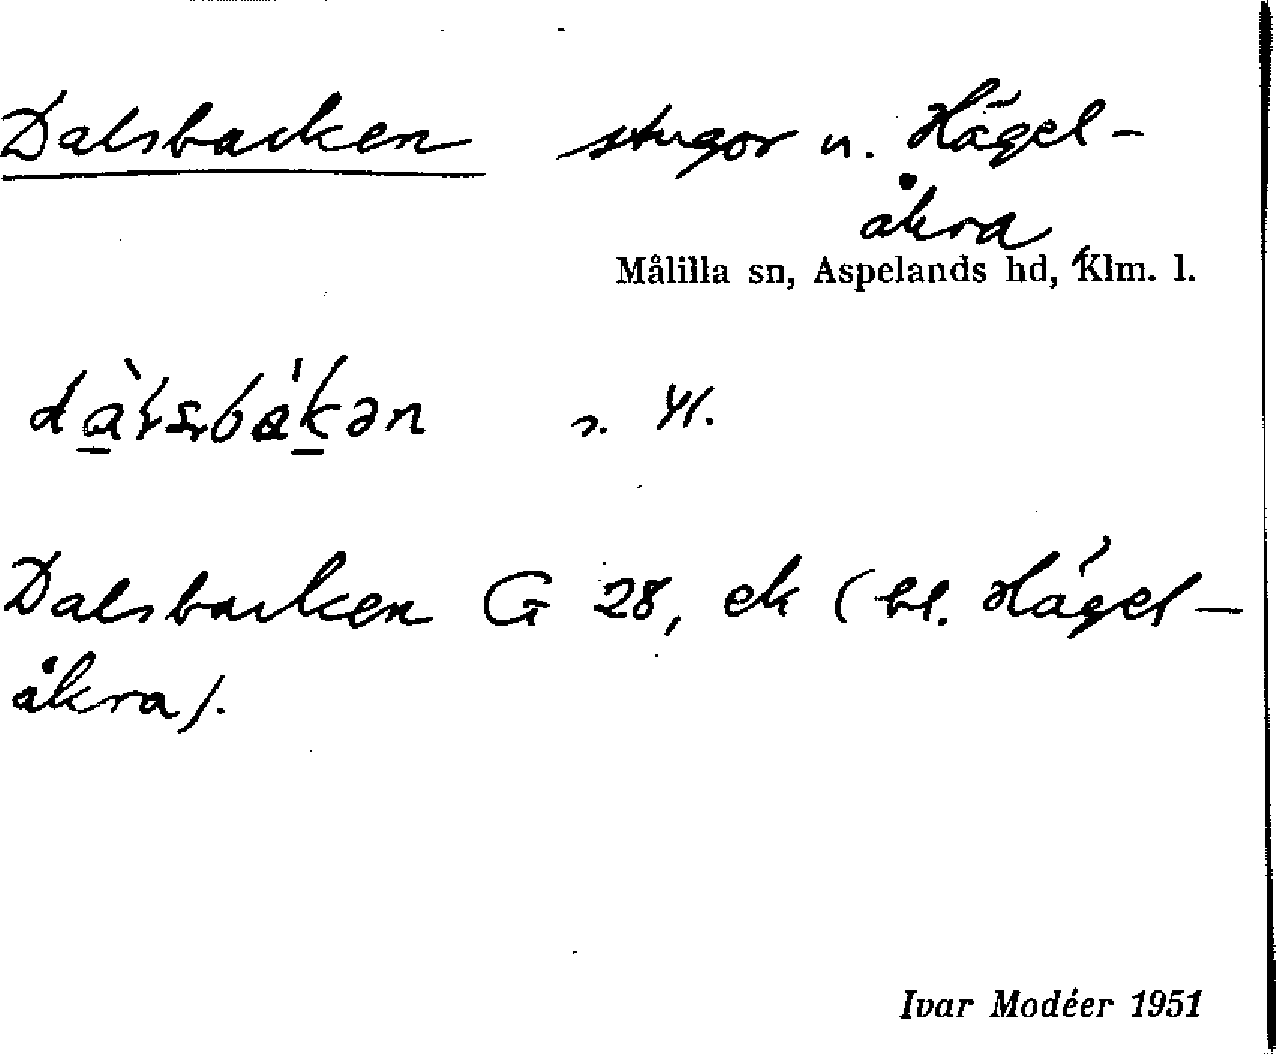 Dalsbacken stugor u. Hägel-
åkra
Målilla sn, Aspelands hd, Klm. l.
Dalsbacken G 28, ek (bl. Hägel-
åkra).
Ivar Modéer 1951